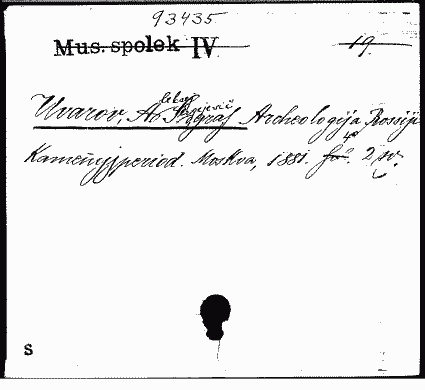 93435
Mus. spolek IV 19
Uvarov, Aleksej Sergejevič graf Archeologija Rossiji
Kamennyj period. Moskva, 1881. 4° 2 sv.
S